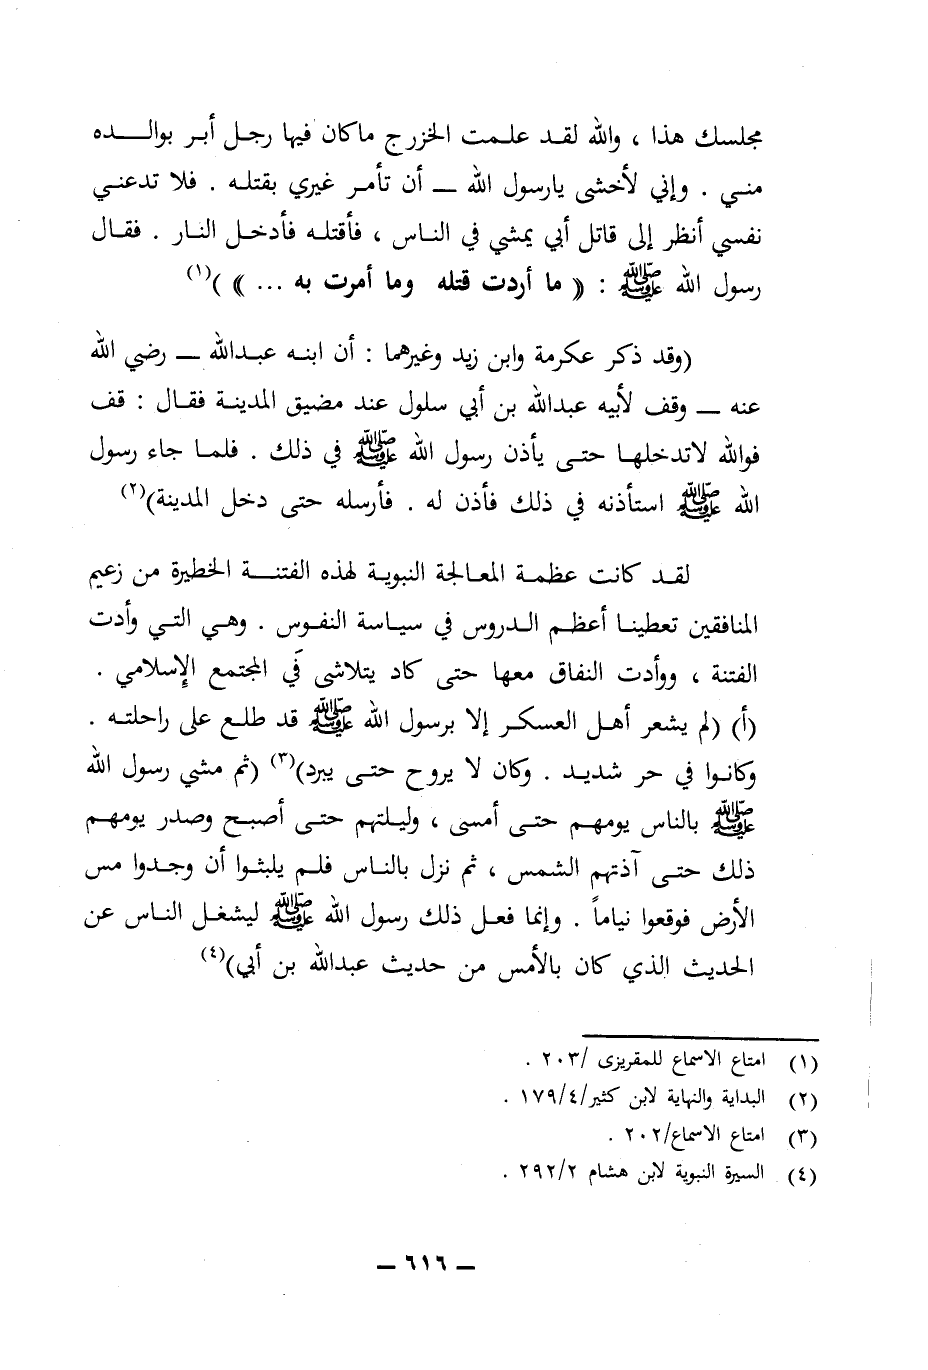 مجلسك هذا ، والله لقد علمت الخزرج ماكان فيها رجل أبر بوالده
مني . وإني لأخشى يارسول الله — أن تأمر غيري بقتله . فلا تدعني
نفسي أنظر إلى قاتل أبي يمشي في الناس ، فأقتله فأدخل النار . فقال
رسول الله ﷺ : « ما أردت قتله وما أمرت به ... » )(١)
(وقد ذكر عكرمة وابن زيد وغيرهما : أن ابنه عبدالله — رضي الله
عنه — وقف لأبيه عبدالله بن أبي سلول عند مضيق المدينة فقال : قف
فوالله لاتدخلها حتى يأذن رسول الله ﷺ في ذلك . فلما جاء رسول
الله ﷺ استأذنه في ذلك فأذن له . فأرسله حتى دخل المدينة)(٢)
لقد كانت عظمة المعالجة النبوية لهذه الفتنة الخطيرة من زعيم
المنافقين تعطينا أعظم الدروس في سياسة النفوس . وهي التي وأدت
الفتنة ، ووأدت النفاق معها حتى كاد يتلاشى في المجتمع الإسلامي .
(أ) (لم يشعر أهل العسكر إلا برسول الله ﷺ قد طلع على راحلته .
وكانوا في حر شديد . وكان لا يروح حتى يبرد)(٣) (ثم مشي رسول الله
ﷺ بالناس يومهم حتى أمسى ، وليلتهم حتى أصبح وصدر يومهم
ذلك حتى آذتهم الشمس ، ثم نزل بالناس فلم يلبثوا أن وجدوا مس
الأرض فوقعوا نياماً . وإنما فعل ذلك رسول الله ﷺ ليشغل الناس عن
الحديث الذي كان بالأمس من حديث عبدالله بن أبي)(٤)
(١) امتاع الاسماع للمقريزى /٢٠٣ .
(٢) البداية والنهاية لابن كثير/١٧٩/٤ .
(٣) امتاع الاسماع/٢٠٢ .
(٤) السيرة النبوية لابن هشام ٢٩٢/٢ .
— ٦١٦ —